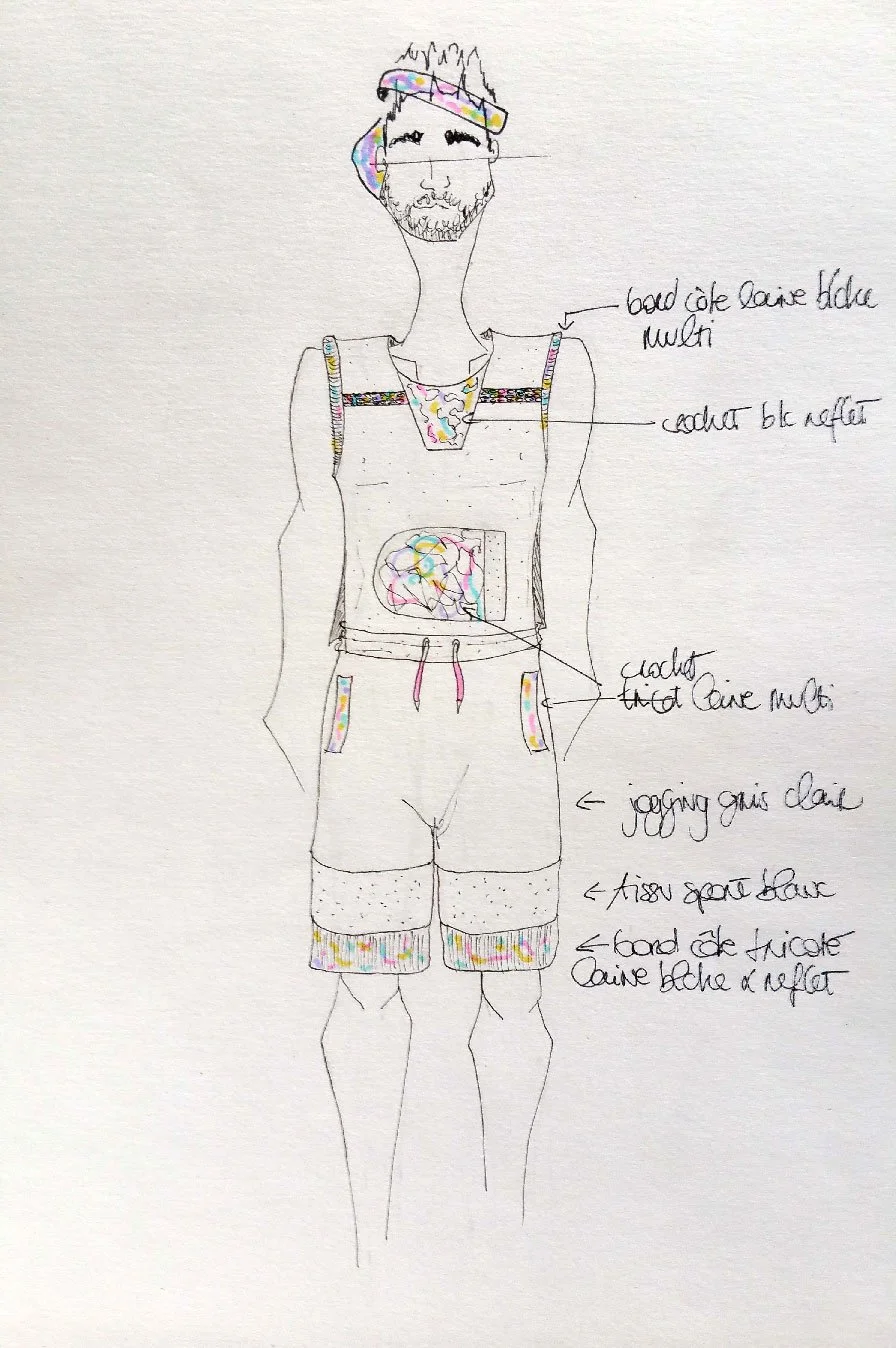 bord côte laine blche
multi
crochet blc reflet
crochet
tricot laine multi
← jogging gris clair
← tissu sport blanc
← bord côte tricoté
laine blche & reflet